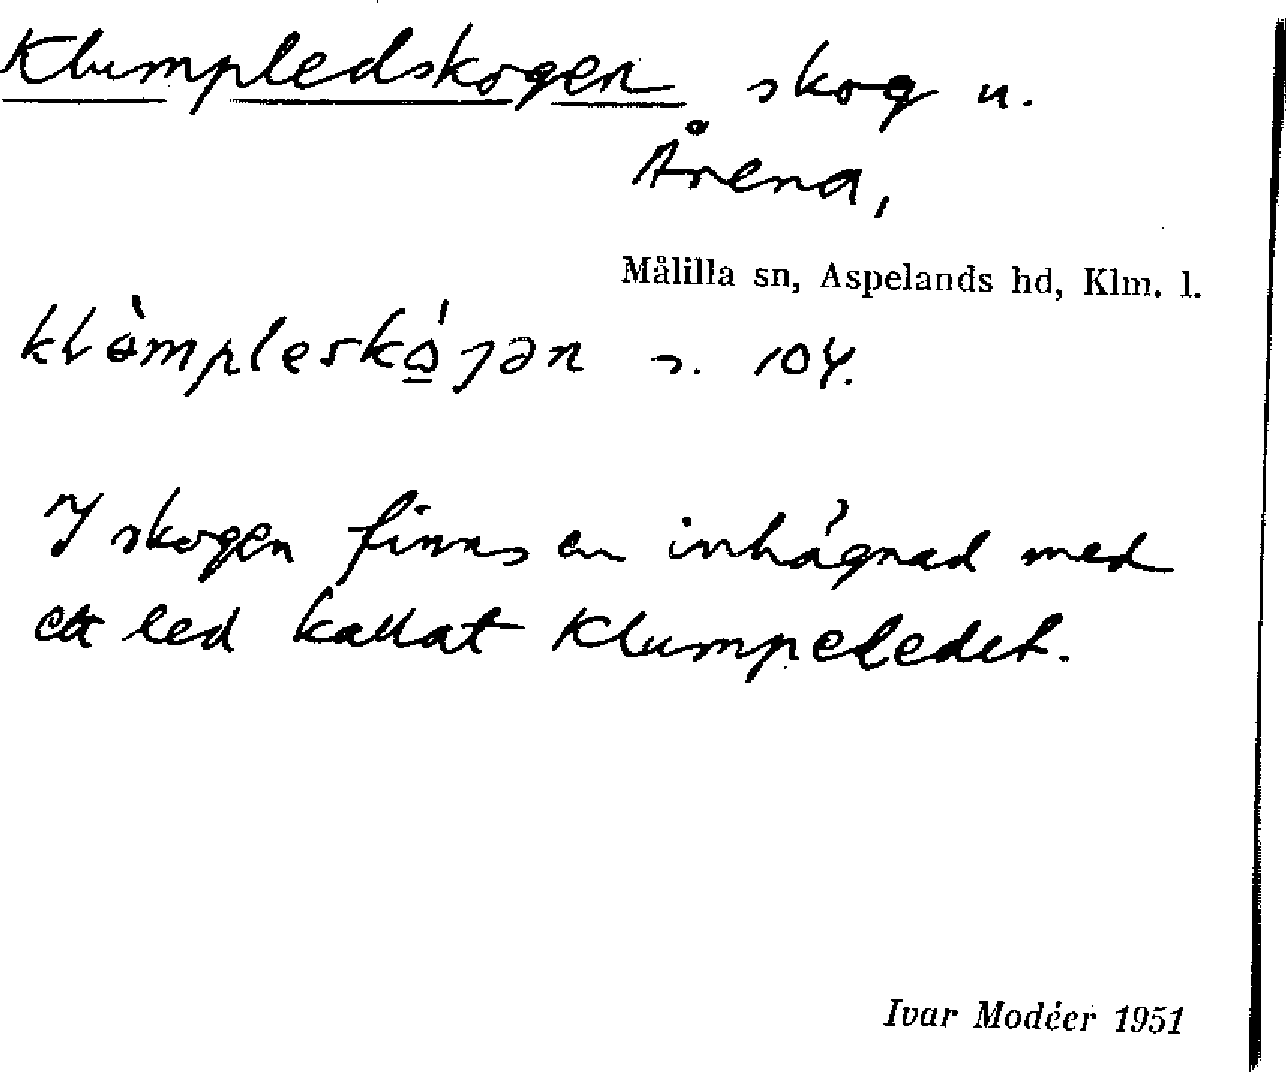 Klumpledskogen skog u.
Årena,
Målilla sn, Aspelands hd, Klm. l.
klòmpleskó̲gən s. 104.
I skogen finns en inhägnad med
ett led kallat Klumpeledet.
Ivar Modéer 1951